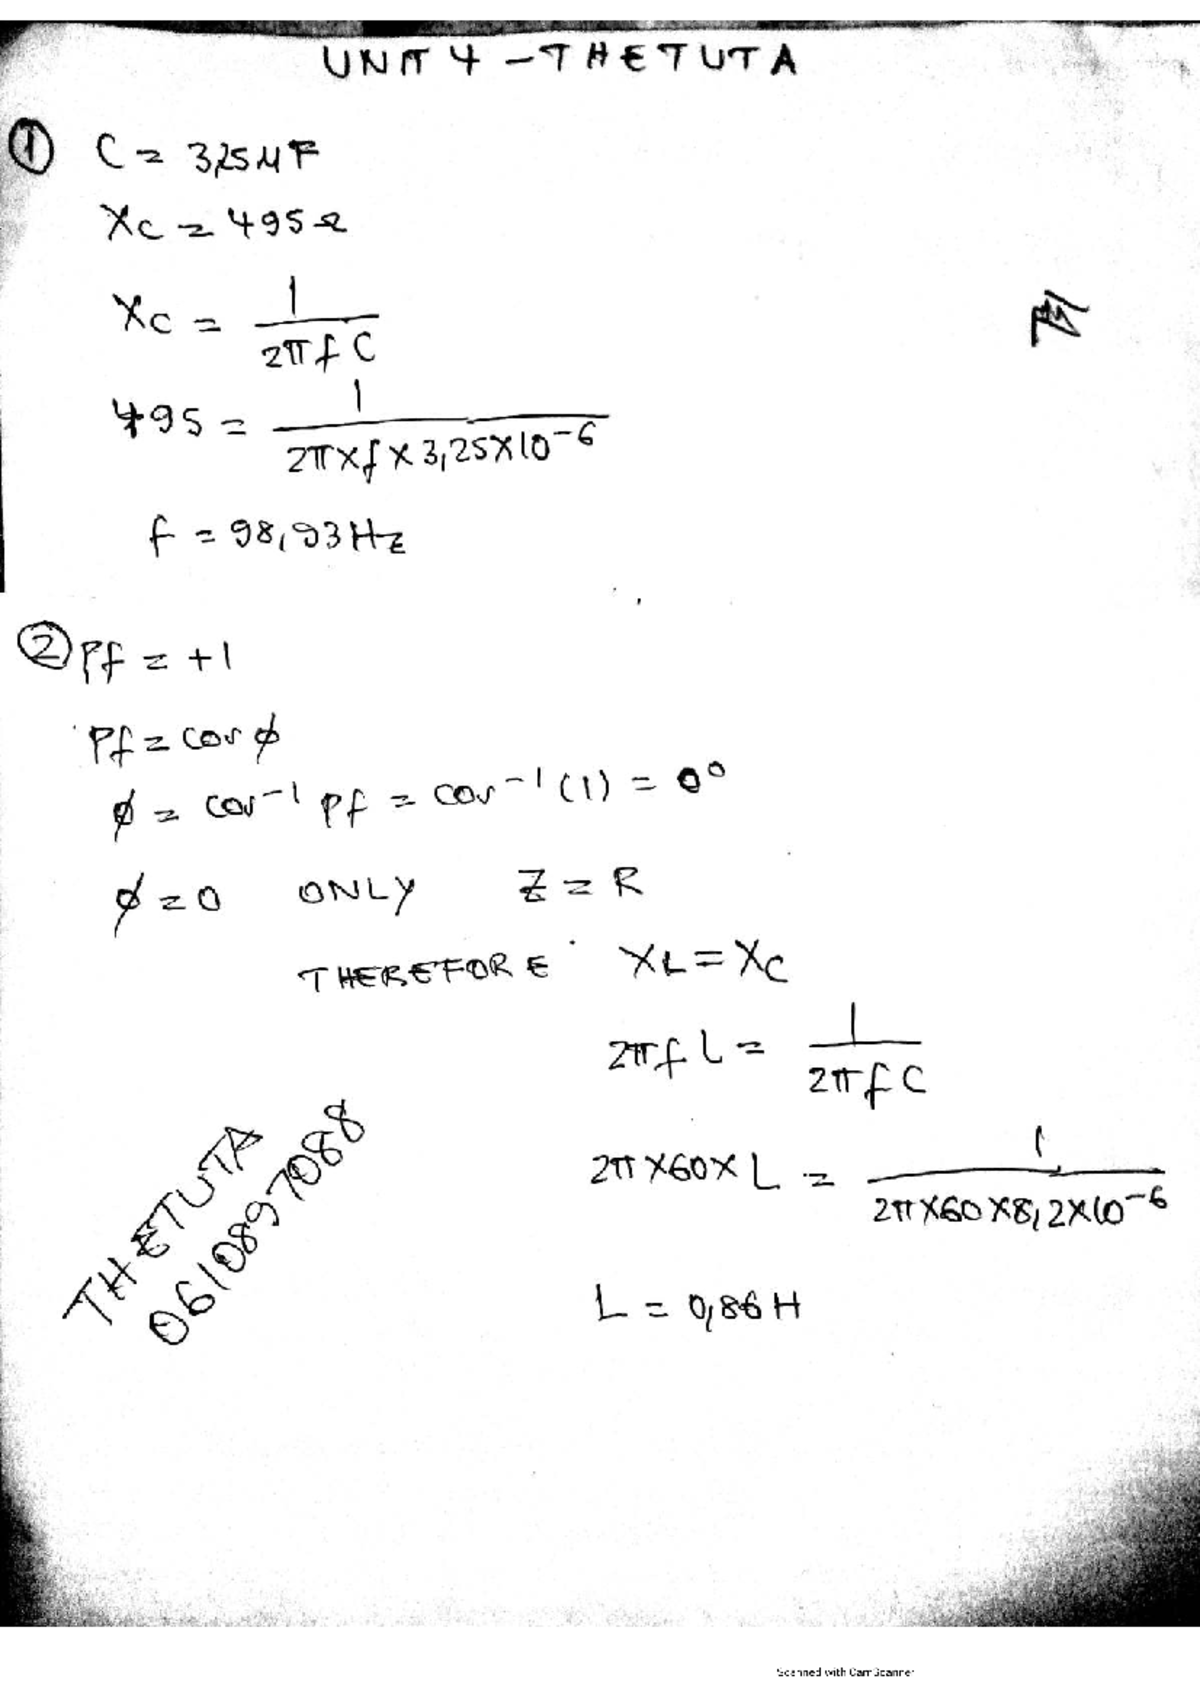 UNIT 4 - THETUTA
① C = 3,25 µF
Xc = 495 Ω
Xc = 1 / 2πfC
495 = 1 / 2π×f×3,25×10⁻⁶
f = 98,93 Hz
② Pf = +1
Pf = cos ϕ
ϕ = cos⁻¹ Pf = cos⁻¹ (1) = 0°
ϕ = 0 ONLY Z = R
THEREFORE XL = XC
2πfL = 1 / 2πfC
2π×60×L = 1 / 2π×60×8,2×10⁻⁶
L = 0,86 H
THETUTA
0610897088
Scanned with CamScanner